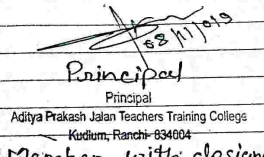 08/11/019
Principal
Principal
Aditya Prakash Jalan Teachers Training College
Kudlum, Ranchi- 834004
Member with design